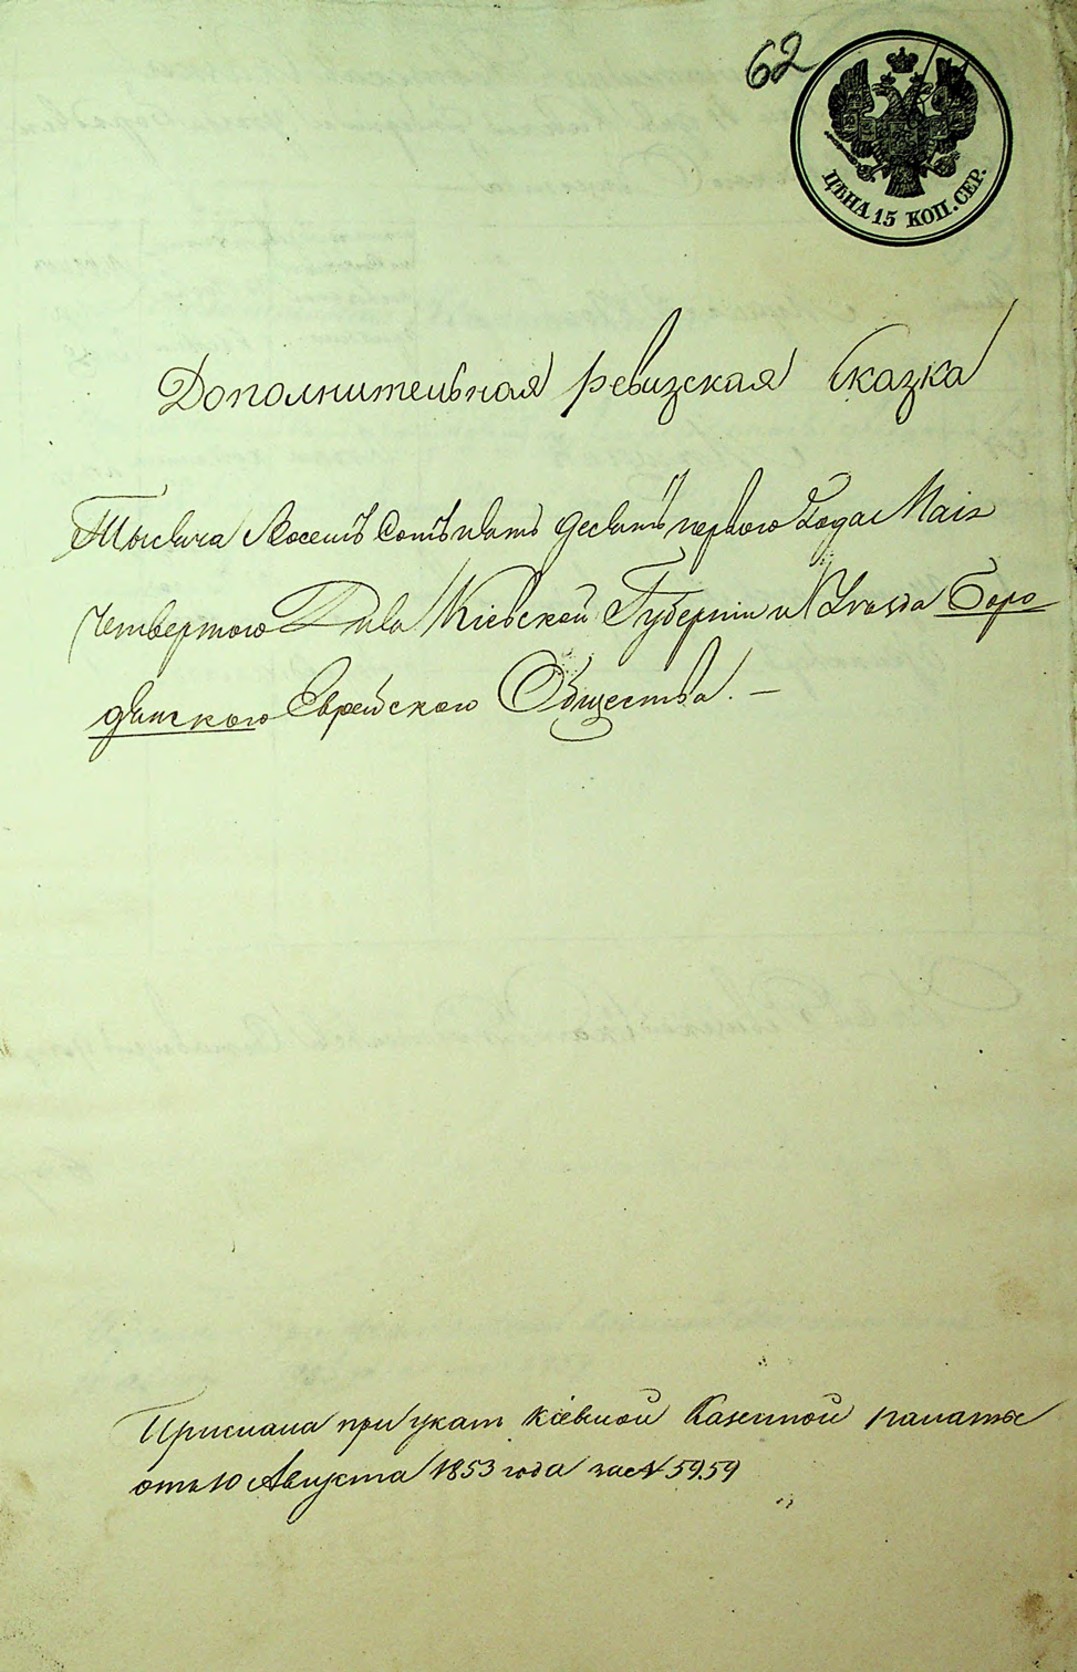 62
ЦѢНА 15 КОП. СЕР.
Дополнительная ревизская Сказка
Тысяча Восемъ Сотъ пять десятъ первого Года Мая
Четвертого Дня Кіевской Губерніи и Уезда Боро
дянского Еврейского Общества. —
Прислана при указе Кіевской Казенной палаты
отъ 10 Августа 1853 года за № 5959